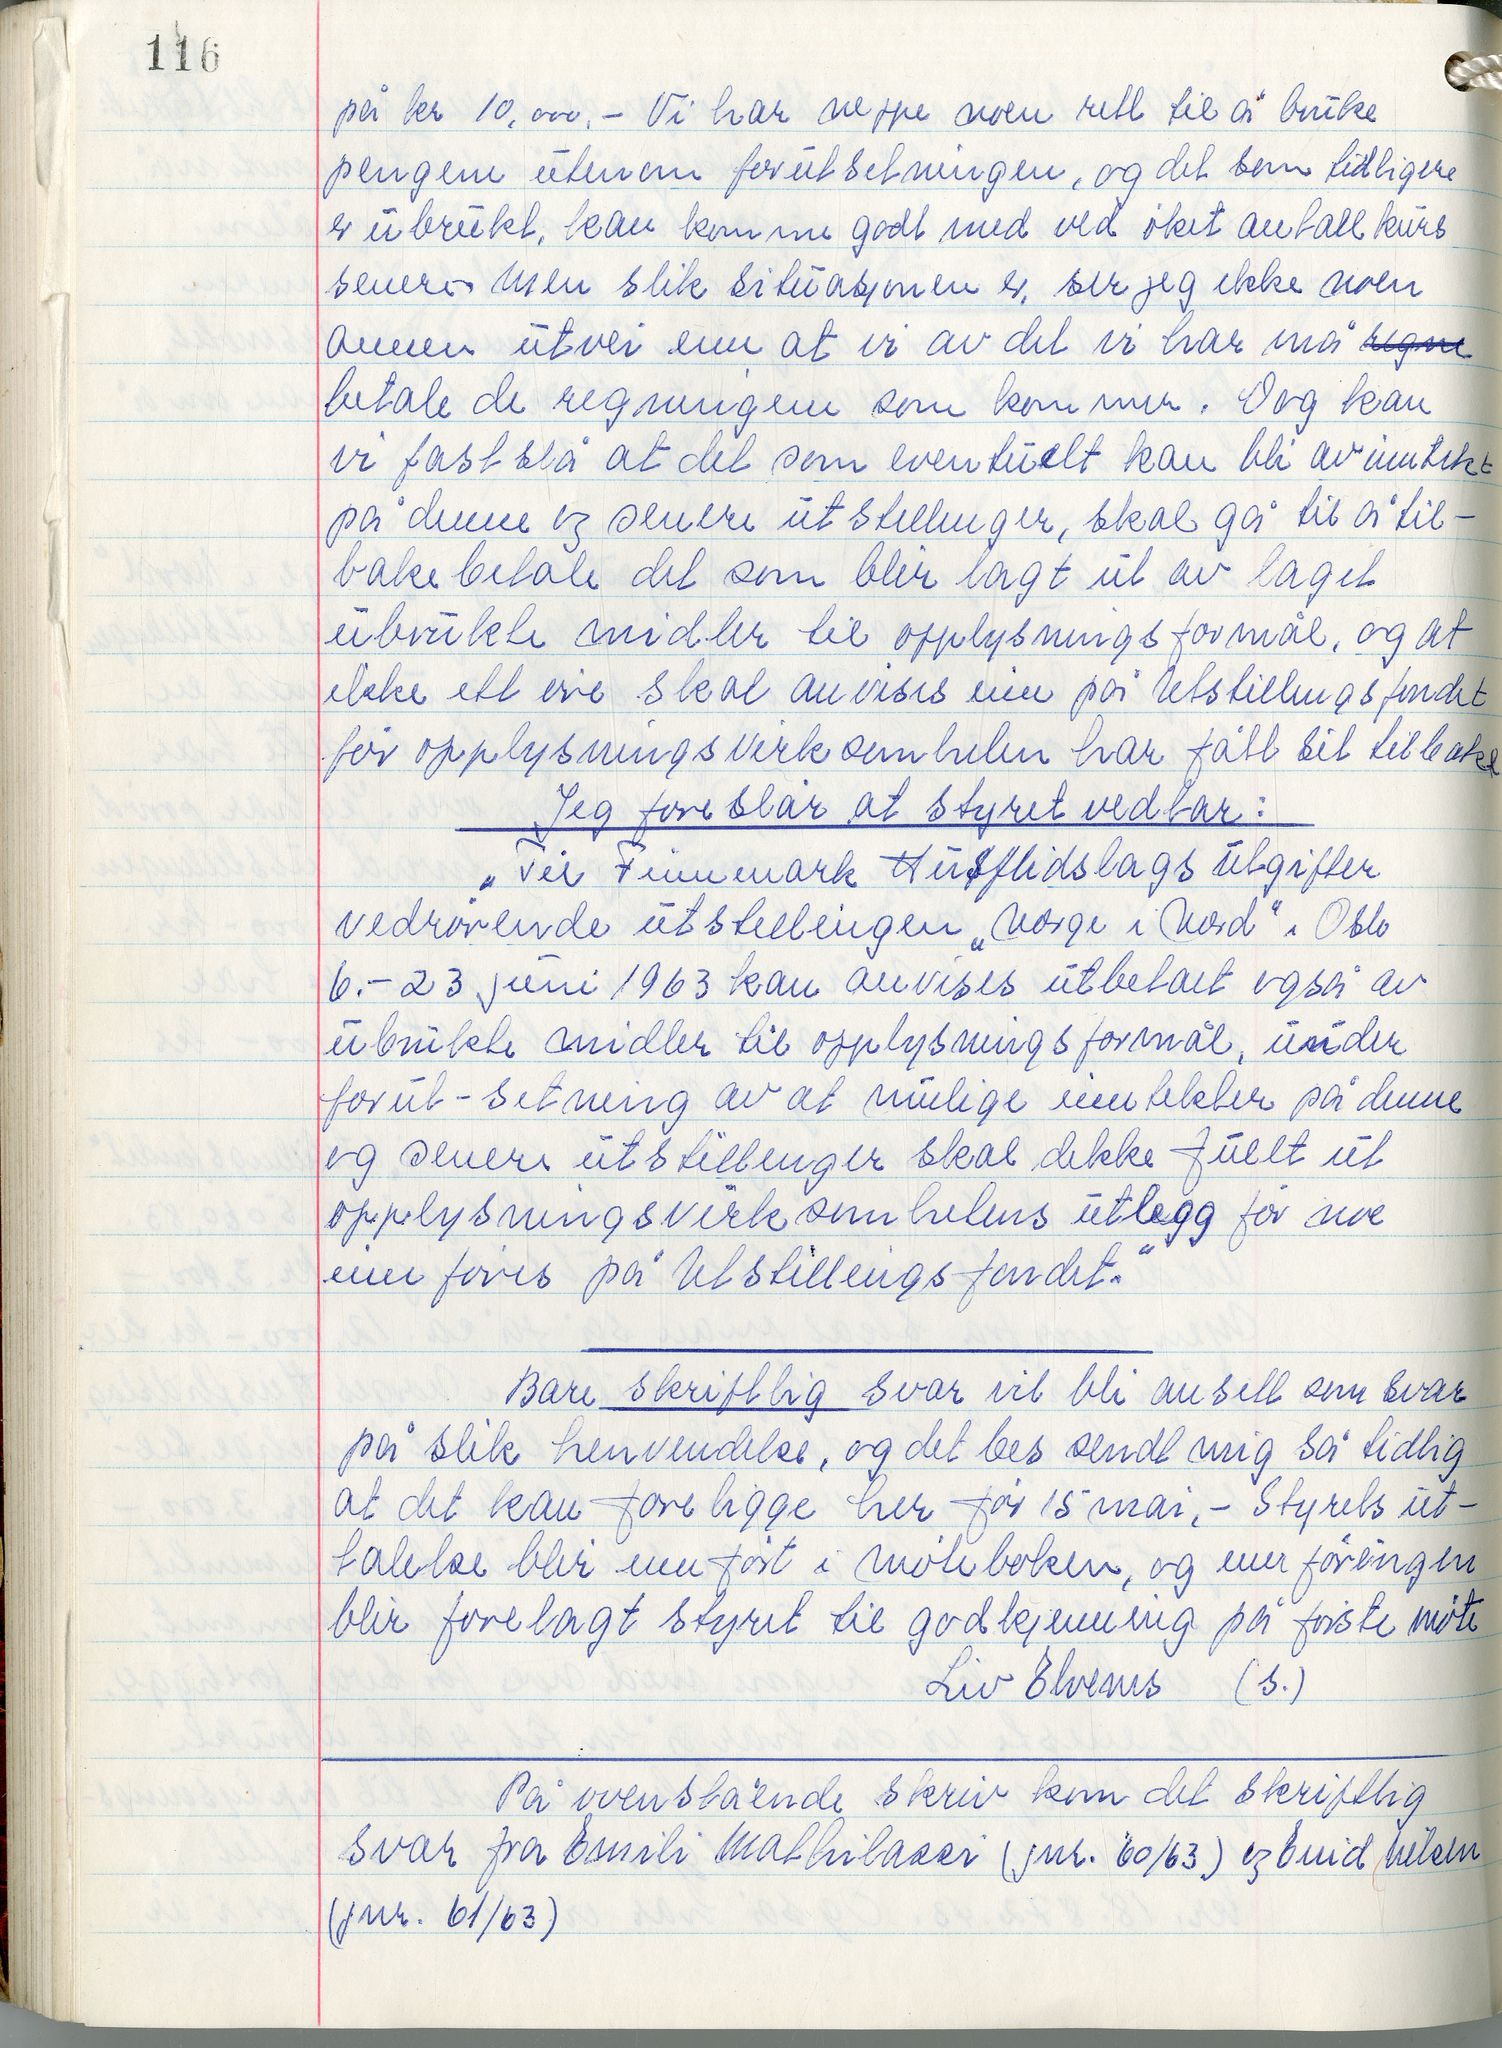 116
på kr 10.000,- Vi har neppe noen rett til å bruke
pengene utenom forutsetningen, og det som tidligere
er ubrukt, kan komme godt med ved öket antall kurs
senere. Men slik situasjonen er, ser jeg ikke noen
annen utvei enn at vi av det vi har må regne
betale de regningene som kommer. Dog kan
vi fastslå at det som eventuelt kan bli av inntekt
på denne og senere utstillinger, skal gå til å til-
bakebetale det som blir lagt ut av laget
ubrukte midler til opplysningsformål, og at
ikke ett öre skal anvises inn på Utstillingsfondet
för opplysningsvirksomheten har fått sit tilbake
Jeg foreslår at styret vedtar:
„Til Finnmark Husflidslags utgifter
vedrörende utstillingen „Norge i Nord" i Oslo
6.- 23 juni 1963 kan anvises utbetalt også av
ubrukte midler til opplysningsformål, under
forut-setning av at mulige inntekter på denne
og senere utstillinger skal dekke fullt ut
opplysningsvirksomhetens utlegg för noe
inn föres på Utstillingsfondet."
Bare skriftlig svar vil bli ansett som svar
på slik henvendelse, og det bes sendt mig så tidlig
at det kan foreligge her för 15 mai,- Styrets ut-
talelse blir innfört i möteboken, og innföringen
blir forelagt styret til godkjenning på förste möte
Liv Elvenes (s.)
På ovenstående skriv kom det skriftlig
svar fra Emili Mathilassi (jnr. 60/63) og Enid
(jnr. 61/63)